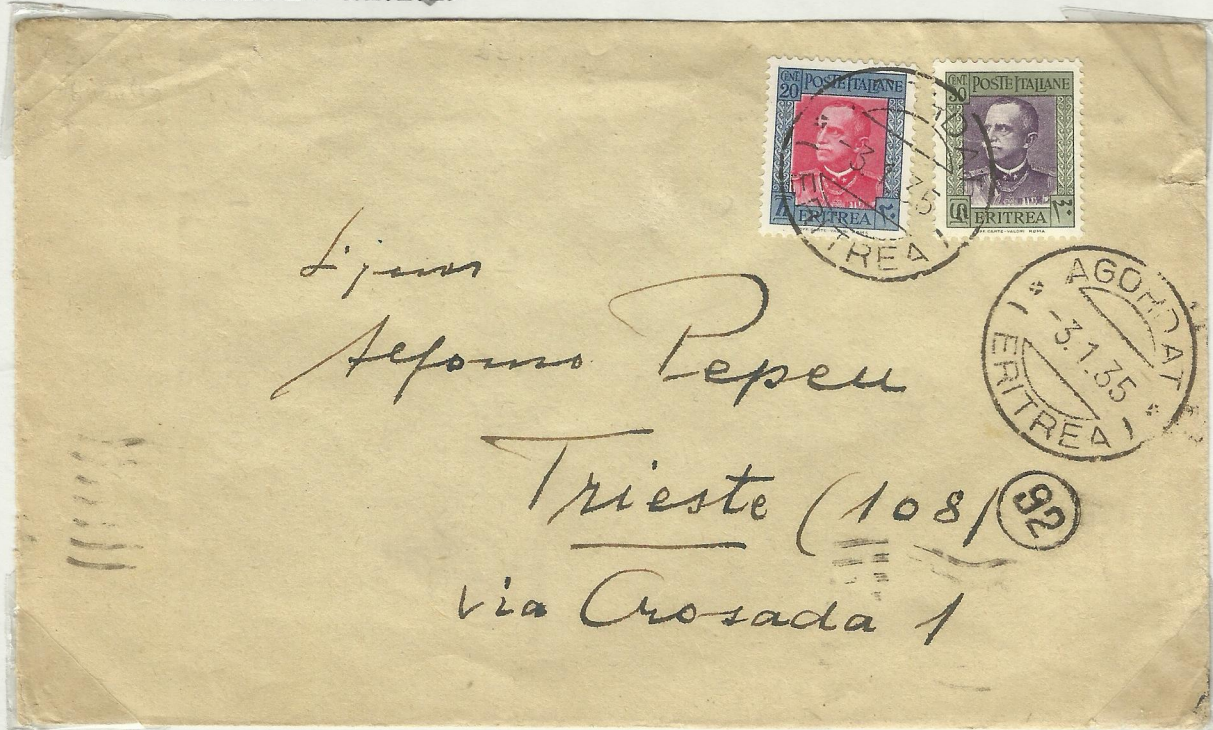 CENT. 20 POSTE ITALIANE
ERITREA
CENT. 30 POSTE ITALIANE
ERITREA
AGORDAT
-3.1.35
ERITREA
AGORDAT
-3.1.35
ERITREA
Signor
Alfonso Pepeu
Trieste (108)
92
via Crosada 1